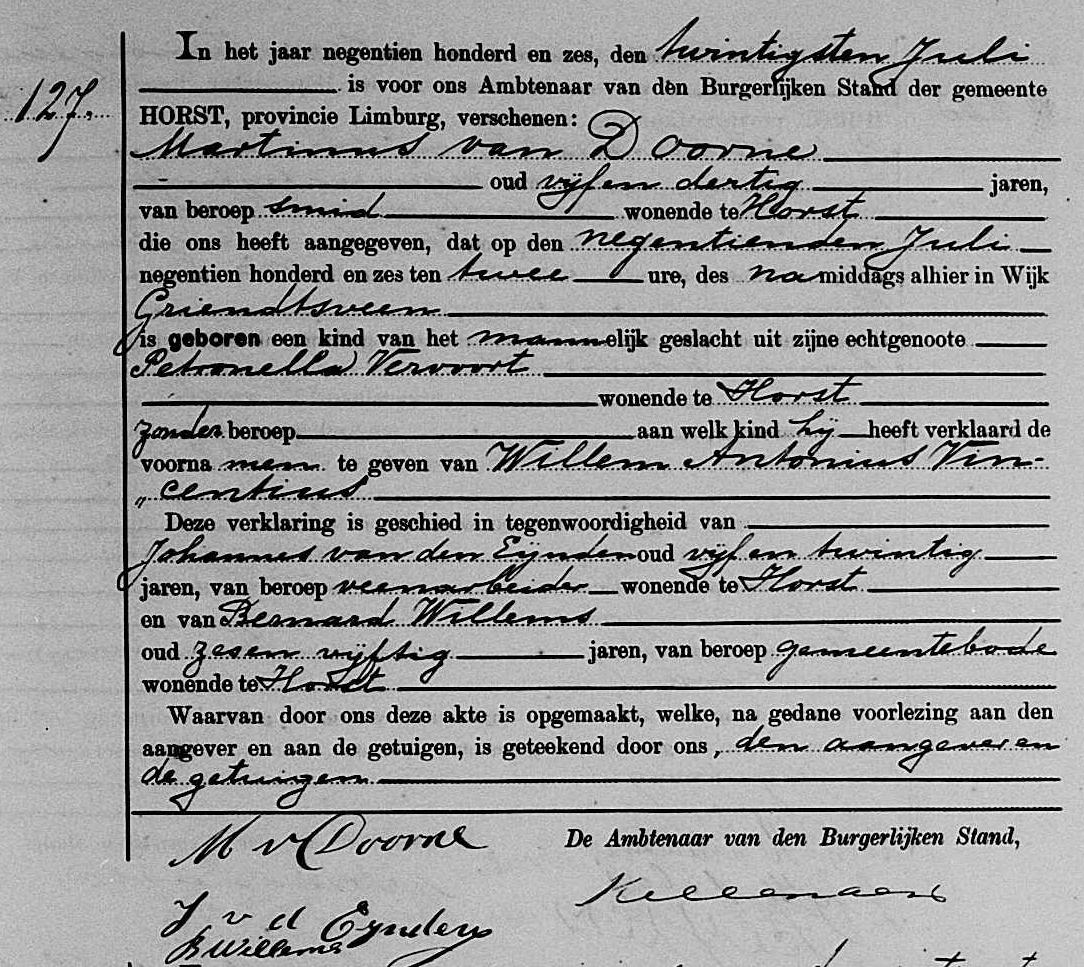 In het jaar negentien honderd en zes, den twintigsten Juli
127.
is voor ons Ambtenaar van den Burgerlijken Stand der gemeente
HORST, provincie Limburg, verschenen:
Martinus van Doorne
oud vijf en dertig jaren,
van beroep smid wonende te Horst
die ons heeft aangegeven, dat op den negentienden Juli
negentien honderd en zes ten twee ure, des namiddags alhier in Wijk
Griendtsveen
is geboren een kind van het mannelijk geslacht uit zijne echtgenoote
Petronella Vervoort
wonende te Horst
zonder beroep aan welk kind hij heeft verklaard de
voornamen te geven van Willem Antonius Vin-
„centius
Deze verklaring is geschied in tegenwoordigheid van
Johannes van den Eijnden oud vijf en twintig
jaren, van beroep veenarbeider wonende te Horst
en van Bernard Willems
oud zes en vijftig jaren, van beroep gemeentebode
wonende te Horst
Waarvan door ons deze akte is opgemaakt, welke, na gedane voorlezing aan den
aangever en aan de getuigen, is geteekend door ons, den aangever en
de getuigen
M v Doorne
De Ambtenaar van den Burgerlijken Stand,
J v d Eynden
B Willems